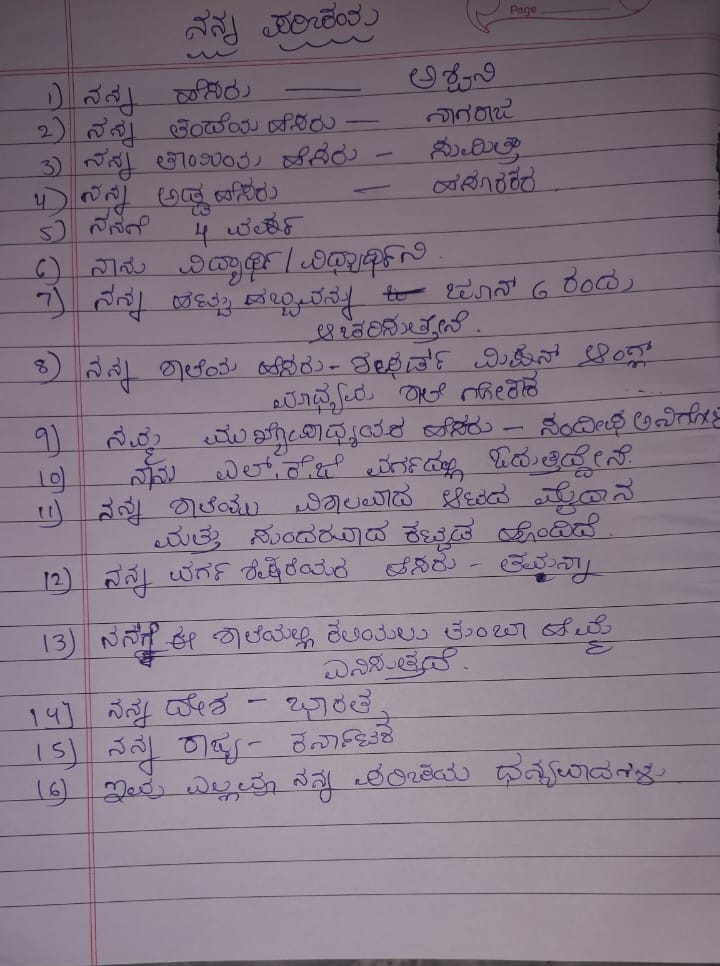 Page
ನನ್ನ ಪರಿಚಯ
1) ನನ್ನ ಹೆಸರು — ಅಶ್ವಿನಿ
2) ನನ್ನ ತಂದೆಯ ಹೆಸರು — ನಾಗರಾಜ
3) ನನ್ನ ತಾಯಿಯ ಹೆಸರು - ಸುಮಿತ್ರಾ
4) ನನ್ನ ಅಡ್ಡ ಹೆಸರು —
5) ನನಗೆ 4 ವರ್ಷ
6) ನಾನು ವಿದ್ಯಾರ್ಥಿ / ವಿದ್ಯಾರ್ಥಿನಿ.
7) ನನ್ನ ಹುಟ್ಟು ಹಬ್ಬವನ್ನು ಜೂನ್ 6 ರಂದು
ಆಚರಿಸುತ್ತೇನೆ.
8) ನನ್ನ ಶಾಲೆಯ ಹೆಸರು - ಮಿಷನ್ ಆಂಗ್ಲ
ಮಾಧ್ಯಮ ಶಾಲೆ
9) ನಮ್ಮ ಮುಖ್ಯೋಪಾಧ್ಯಯರ ಹೆಸರು - ಸಂದೀಪ
10) ನಾನು ಎಲ್.ಕೆ.ಜಿ ವರ್ಗದಲ್ಲಿ ಓದುತ್ತಿದ್ದೇನೆ.
11) ನನ್ನ ಶಾಲೆಯು ವಿಶಾಲವಾದ ಆಟದ ಮೈದಾನ
ಮತ್ತು ಸುಂದರವಾದ ಕಟ್ಟಡ ಹೊಂದಿದೆ.
12) ನನ್ನ ವರ್ಗ ಶಿಕ್ಷಕಿಯರ ಹೆಸರು -
13) ನನಗೆ ಈ ಶಾಲೆಯಲ್ಲಿ ಕಲಿಯಲು ತುಂಬಾ ಹೆಮ್ಮೆ
ಎನಿಸುತ್ತದೆ.
14) ನನ್ನ ದೇಶ - ಭಾರತ
15) ನನ್ನ ರಾಜ್ಯ - ಕರ್ನಾಟಕ
16) ಇದು ಎಲ್ಲವೂ ನನ್ನ ಪರಿಚಯ ಧನ್ಯವಾದಗಳು.